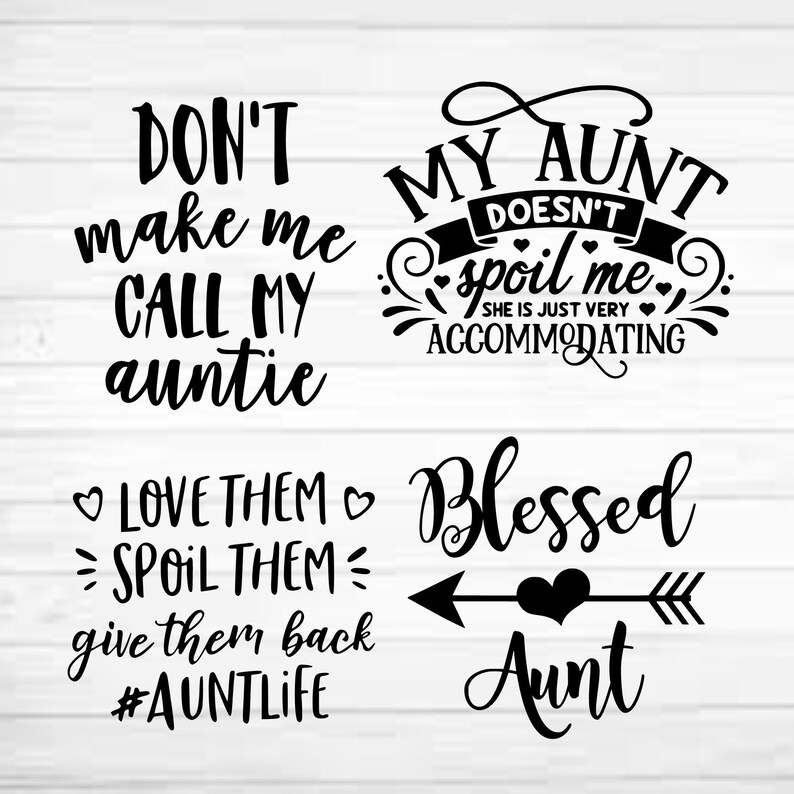 DON'T
make me
CALL MY
auntie
MY AUNT
DOESN'T
spoil me
SHE IS JUST VERY
ACCOMMODATING
LOVE THEM
SPOiL THEM
give them back
#AUNTLiFE
Blessed
Aunt